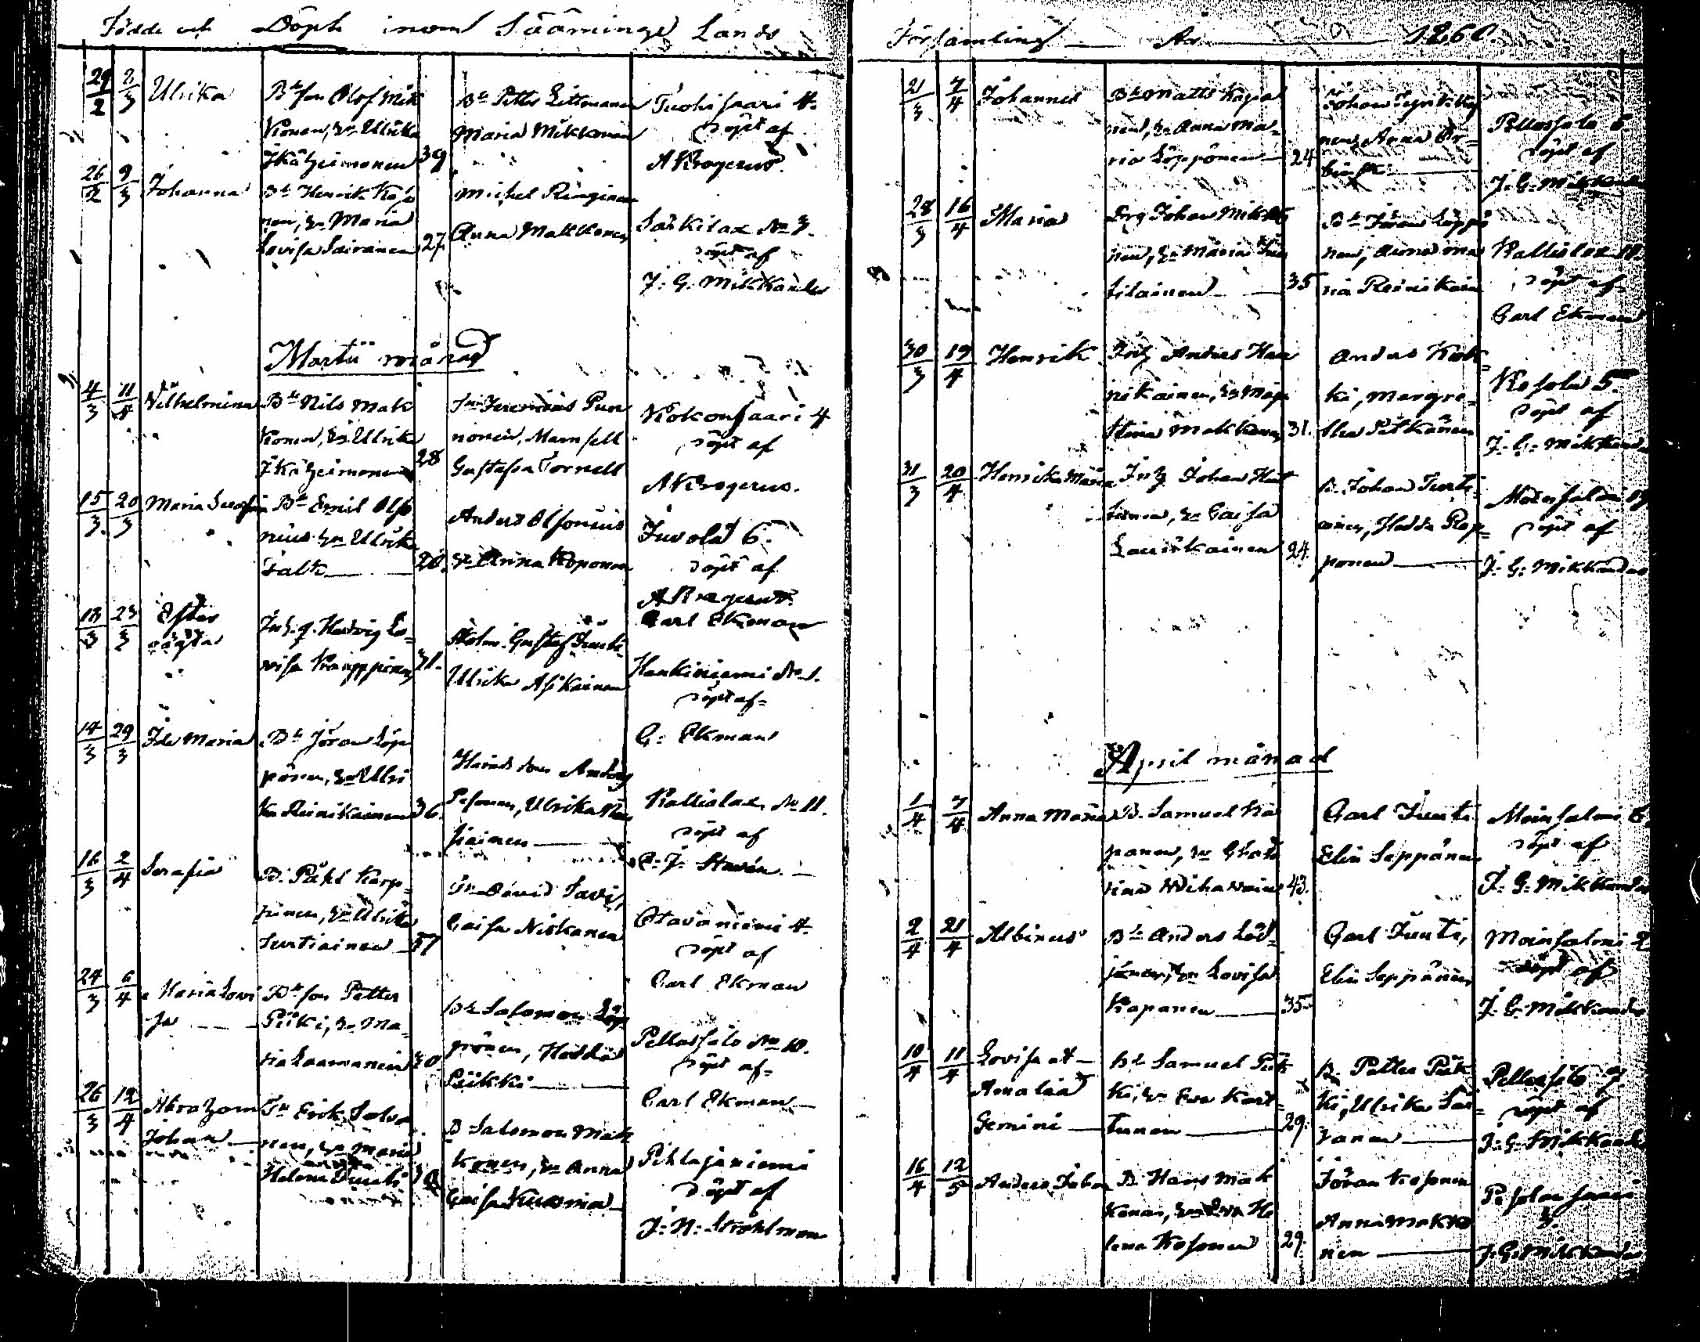 Födde och Döpte inom Sääminge Lands
29/2 2/3 Ulrika Bdeson Olof Mik
konen, h. Ulrika
Ikäheimonen 39
Bde Petter Liitmanen
Maria Mikkonen
Tuohisaari 4.
döpt af
A Krogerus.
26/2 9/3 Johanna Bd. Henrik Kosonen, h. Maria
Lovisa Sairanen 27.
Michel Ruginen
Anna Makkonen
Särkilax No 3.
döpt af
J. G. Mikkander
Martii månad
4/3 11/4 Wilhelmina Bde Nils Mak
konen, h. Ulrika
Ikäheimonen 28
Jeremias Pun
nonen, Mamsell
Gustafva Tornell
Kokonsaari 4
döpt af
A Krogerus.
15/3 20/3 Maria Serafia Bde Emil Olfo
nius h. Ulrika
Falk 20.
Anders Olfonius
h. Anna Koponen
Juvola 6.
döpt af
A Krogerus.
13/3 23/3 Ester
oägta
Inh. q. Hedvig Lo
visa Kauppinen 31.
Gustaf
Ulrika Asikainen
Carl Ekman
Haukiniemi No 1.
döpt af
C. Ekman
14/3 29/3 Ida Maria Bde Jöran Löp
pönen, h. Ulri
ka Reinikainen 36.
Anders
Pesonen, Ulrika
siainen
Kallislax No 11.
döpt af
C. J. Stavén
16/3 2/4 Serafia B. Påhl Karp
pinen, h. Ulrika
Turtiainen 37
David Savi,
Caisa Niskanen
Otavaniemi 4.
döpt af
Carl Ekman
24/3 6/4 Maria Lovi
sa
Bdeson Petter
Piiki, h. Ma
ria Laamanen 30
Bde Salomon Löp
pönen, Hedda
Piikki
Pellossalo No 10.
döpt af
Carl Ekman
26/3 12/4 Abraham
Johan
Erik Salo
nen, h. Maria
Helena
B Salomon Mak
konen, h. Anna
Caisa
Pihlajaniemi
döpt af
J. H. Stråhlman
Församling År 1860.
21/3 7/4 Johannes Bde Matts Kapa
nen, h. Anna Ma
ria Löppönen 24
Johan
nen, Anna
Pellossalo 5
döpt af
J. G. Mikkander
28/3 16/4 Maria Drg Johan Mikko
nen, h. Maria
silainen 35
Bde Jöran Löppö
nen, Anna Ma
ria Reinikain
Kallislax 11.
döpt af
Carl Ekman
30/3 19/4 Henrik Inhy Anders Hau
nikainen, h. Maja
Stina Makkonen 31.
Anders Kok
ki, Margre
tha Pitkänen
Kosola 5
döpt af
J. G. Mikkander
31/3 20/4 Henrika Maria Inhy Johan Hut
tunen, h. Caisa
Lauikainen 24.
B. Johan Turti
ainen, Hedda Rop
ponen
Moinsalmi 19
döpt af
J. G. Mikkander
April månad
1/4 7/4 Anna Maria B. Samuel Ka
panen, h. Christi
na Wihavain 43.
Carl Tuuti
Elin Seppänen
Moinsalmi 6.
döpt af
J. G. Mikkander
2/4 21/4 Albinus Bde Anders Löp
pönen, h. Lovisa
Kapanen 35
Carl Tuuti,
Elin Seppänen
Moinsalmi 2
döpt af
J. G. Mikkander
10/4 11/4 Lovisa et
Amalia
Gemini
Bd Samuel Piik
ki, h. Eva Kart
tunen 29.
B. Petter Piik
ki, Ulrika Sai
ranen
Pellossalo 7
döpt af
J. G. Mikkander
16/4 12/5 Anders Johan B. Hans Mak
konen, h. Eva He
lena Kosonen 29.
Jöran Kosonen
Anna Makko
nen
Pesolansaari
3.
J. G. Mikkander